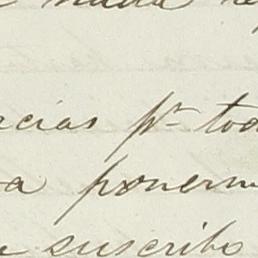 nada re
cias pr. tod
a ponerm
suscribo